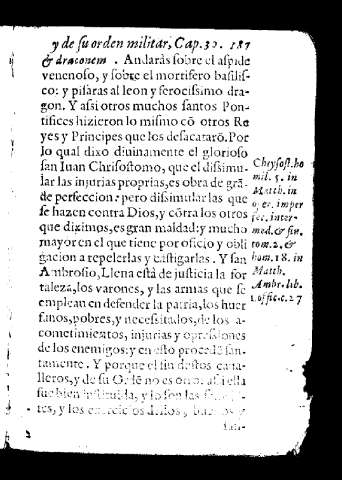 y de su orden militar, Cap. 30. 187
& draconem. Andaràs sobre el aspide
venenoso, y sobre el mortifero basilis-
co: y pisaràs al leon y ferocissimo dra-
gon. Y assi otros muchos santos Pon-
tifices hizieron lo mismo cõ otros Re
yes y Principes que los desacatarõ. Por
lo qual dixo diuinamente el glorioso
san Iuan Chrisostomo, que el dissimu-
lar las injurias proprias, es obra de grã-
de perfeccion: pero dissimular las que
se hazen contra Dios, y cõtra los otros
que diximos, es gran maldad: y mucho
mayor en el que tiene por oficio y obli
gacion a repelerlas y castigarlas. Y san
Ambrosio, Llena està de justicia la for
taleza, los varones, y las armas que se
emplean en defender la patria, los huer
fanos, pobres, y necessitados, de los a-
cometimientos, injurias y opressiones
de los enemigos: y en esto procede san-
tamente. Y porque el fin destos caua-
lleros, y de su Ordẽ no es otro, assi ella
fue bien instituida, y lo son las
res, y los exercicios dellos, buenos y
san-
Chrysost. ho
mil. 5. in
Matth. in
oper. imper
fec. inter-
med. & fin.
tom. 2. &
hom. 18. in
Matth.
Ambr. lib.
1. offic. c. 27